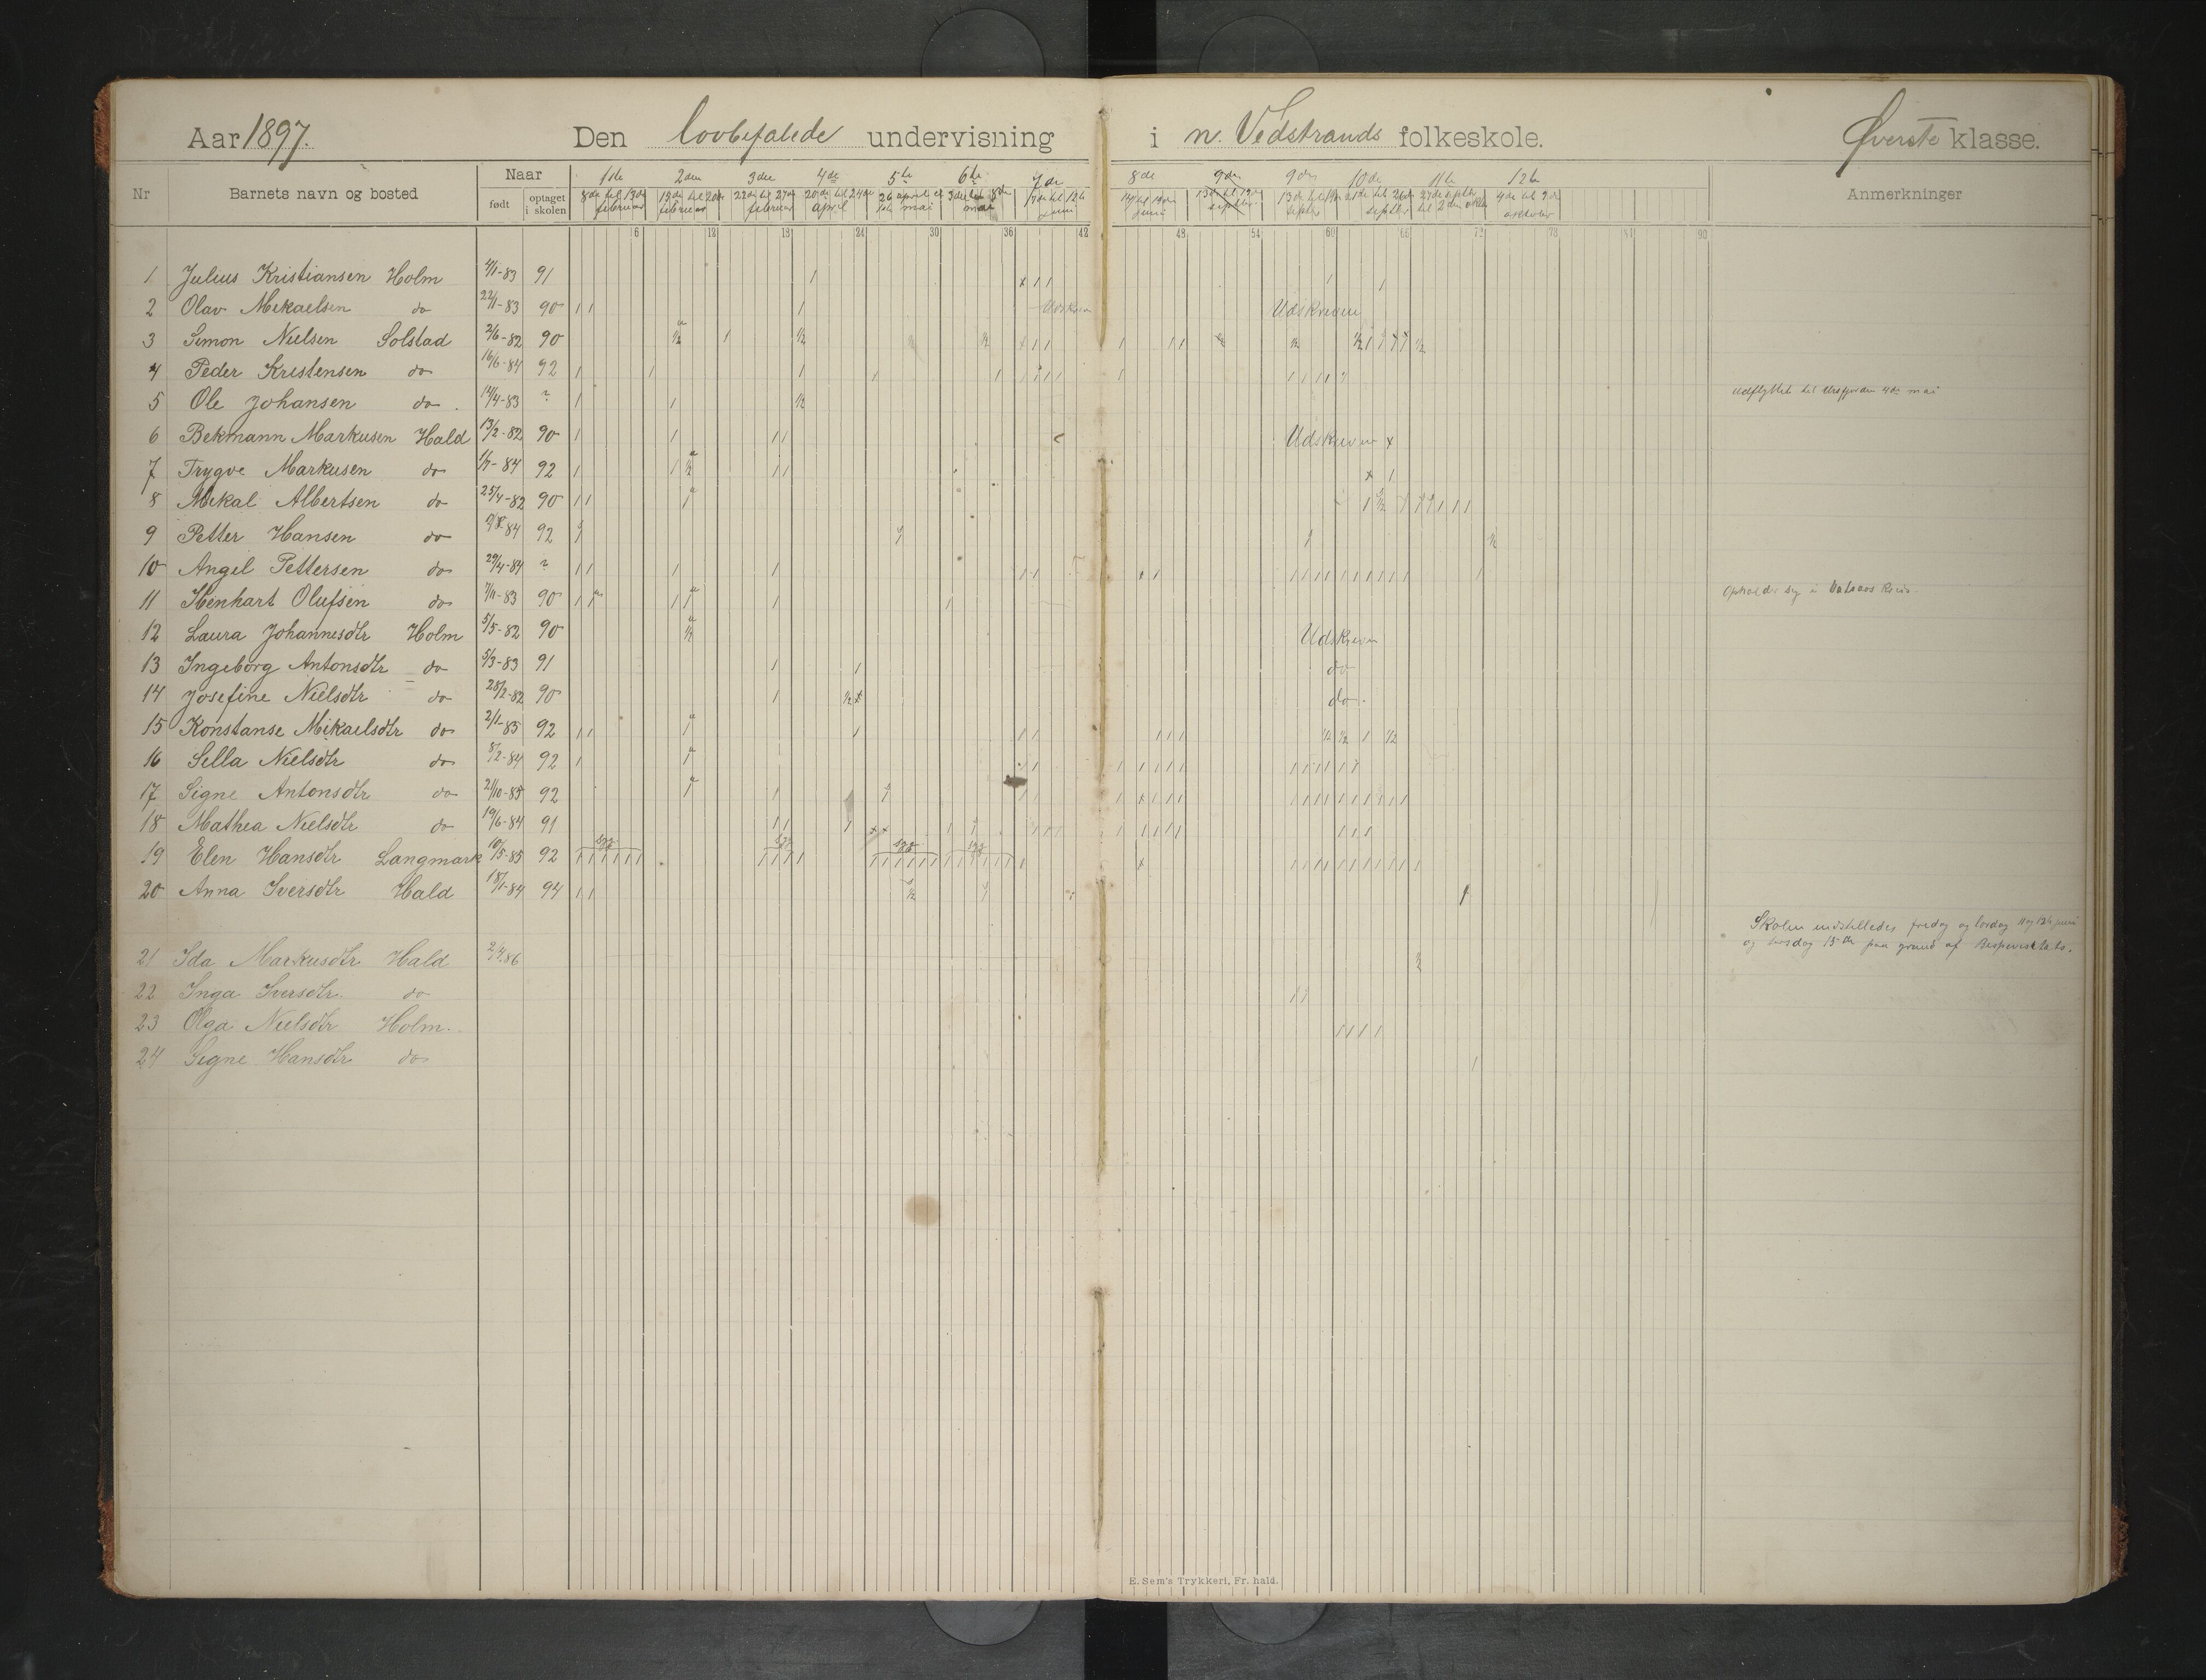 Aar 1897. Den lovbefalede undervisning i n. Vedstrands folkeskole. Øverste klasse.
Nr Barnets navn og bosted Naar født optaget i skolen Anmerkninger
1de 2den 3die 4de 5te 6te 7de 8de 9de 9de 10de 11te 12te
8de til 13de februar
15de til 20de februar
22de til 27de februar
20de til 24de april
26 april til mai
3die til 8de mai
7de til 12te juni
14 til 19de juni
13de til
21de til septbr
27de septbr til 2den oktbr
4de til 9de oktober
6 12 18 24 30 36 42 48 54 60 66 72 78 84 90
1 Julius Kristiansen Holm 4/1-83 91
2 Olav Mikaelsen do 22/1-83 90 Udskreven Udskreven
3 Simon Nielsen Solstad 2/6-82 90
4 Peder Kristensen do 16/6-84 92
5 Ole Johansen do. 14/4-83 ? udflyttet til 4de mai
6 Bekmann Markusen Hald 13/2-82 90 Udskreven x
7 Trygve Markusen do 1/7-84 92
8 Mikal Albertsen do 25/4-82 90
9 Petter Hansen do 84 92
10 Angel Pettersen do 29/4-84 ?
11 Henhart Olufsen do 7/11-83 90 Opholder sig i
12 Laura Johannesdtr Holm 5/5-82 90 Udskreven
13 Ingeborg Antonsdtr do 5/3-83 91 do
14 Josefine Nielsdtr do 28/2-82 90 do.
15 Konstanse Mikaelsdtr do 2/1-85 92
16 Sella Nielsdtr do 8/2-84 92
17 Signe Antonsdtr do 21/10-85 92
18 Mathea Nielsdtr do 19/6-84 91
19 Elen Hansdtr Langmark 10/5-85 92 syg syg syg syg
20 Anna Iversdtr Hald 18/1-84 94
Skolen indstilledes fredag og lørdag 11 og 12te juni
og 15de paa grund af
21 Ida Markusdtr Hald 2/4.86
22 Inga Iversdtr. do
23 Olga Nielsdtr Holm.
24 Signe Hansdtr do
E. Sem's Trykkeri, Fr. hald.